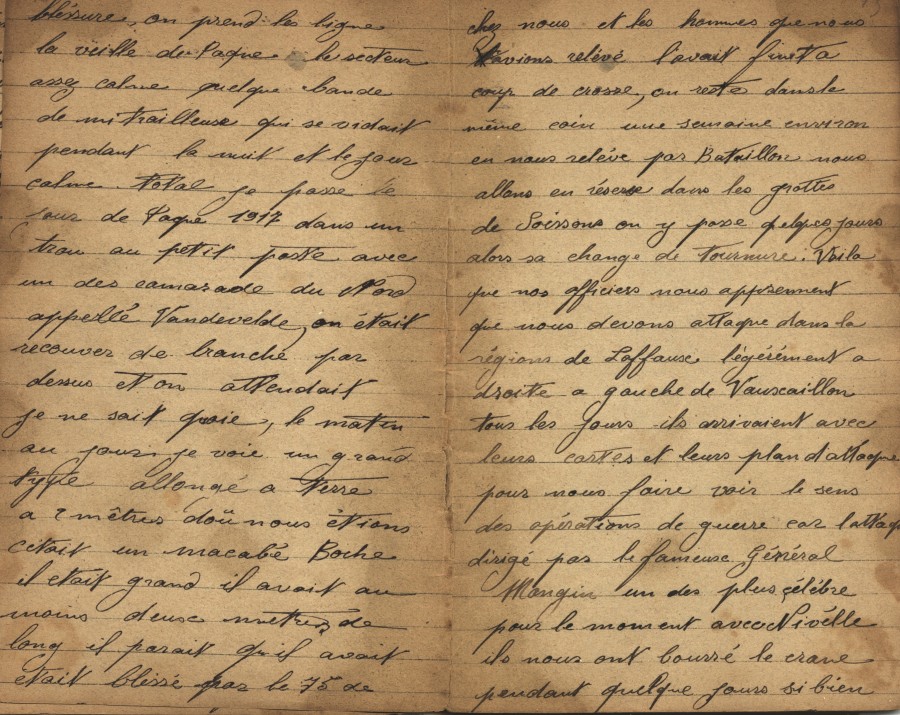 bléssure, on prend les ligne
la veille de Paque le secteur
assez calme quelque bande
de mitrailleuse qui se vidait
pendant la nuit et le jour
calme total je passe le
jour de Paque 1917 dans un
trou au petit poste avec
un des camarade du Nord
appellé Vandevelde, on était
recouver de branche par
dessus et on attendait
je ne sait quoie, le matin
au jour je voie un grand
type allongé a terre
a 2 mètres doü nous étions
cétait un macabé Boche
il etait grand il avait au
moins deuse metres de
long il parait qu'il avait
etait blessé par le 75 de
chez nous et les hommes que nous
avions relévé l'avait finit a
coup de crosse, on reste dans le
même coin une semaine environ
en nous reléve par Bataillon nous
allons en réserve dans les grottes
de Soissons on y passe quelques jours
alors sa change de tournure. Voila
que nos officiers nous apprennent
que nous devons attaque dans la
régions de Laffaux légérément a
droite a gauche de Vauxaillon
tous les jours ils arrivaient avec
leurs cartes et leurs plan d'attaque
pour nous faire voir le sens
des opérations de guerre car l'attaq
dirigé par le fameuse Général
Mangin un des plus célébre
pour le moment avec Nivélle
ils nous ont bourré le crane
pendant quelque jours si bien